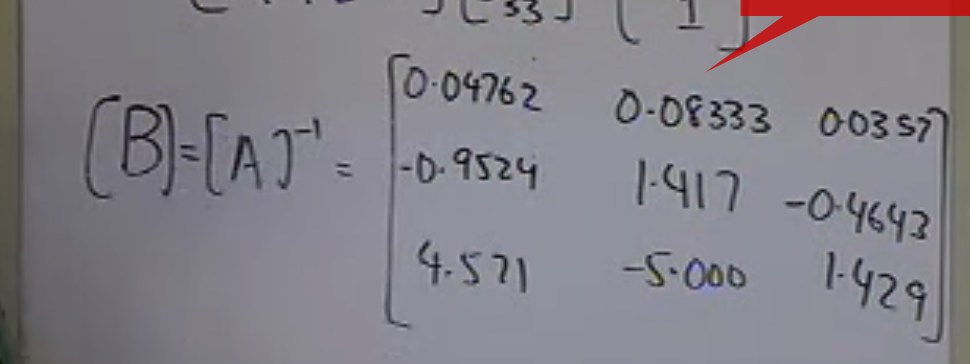 33 1
0.04762 0.08333 0.0357
[B]=[A]⁻¹ = -0.9524 1.417 -0.4643
4.571 -5.000 1.429